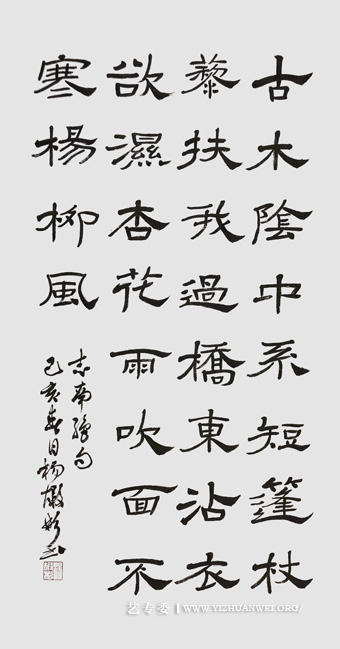 古木陰中系短篷杖
藜扶我過橋東沾衣
欲濕杏花雨吹面不
寒楊柳風
志南絕句
己亥春日楊
艺专委 | WWW.YIZHUANWEI.ORG/